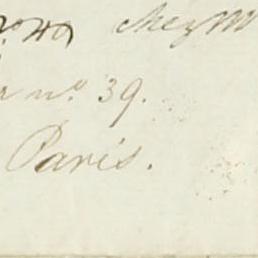 chez M
n.º 39.
Paris.